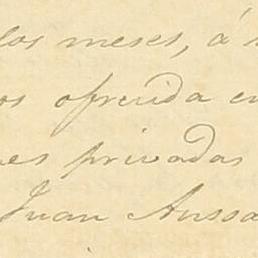 los meses, á
os ofrecida en
es privadas
Juan Aussa